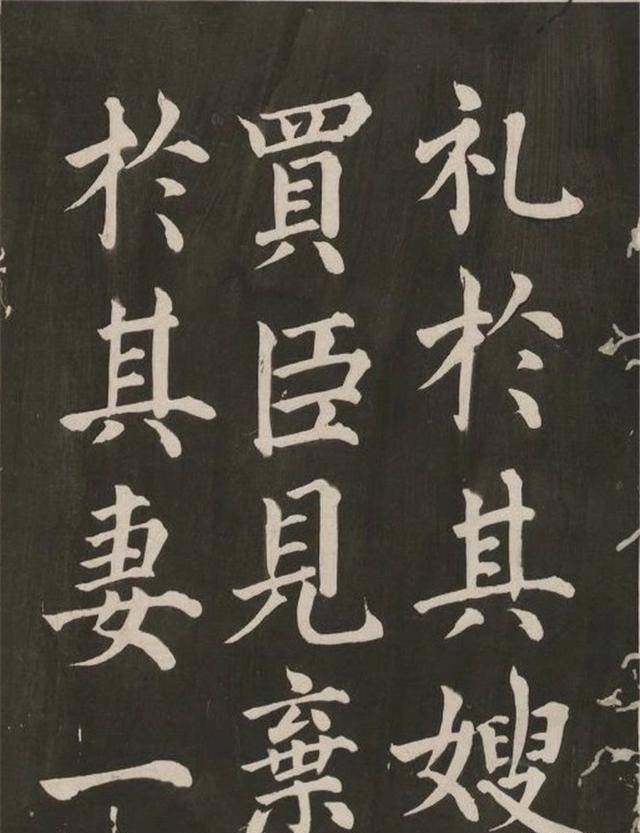 礼於其嫂
買臣見棄
於其妻一